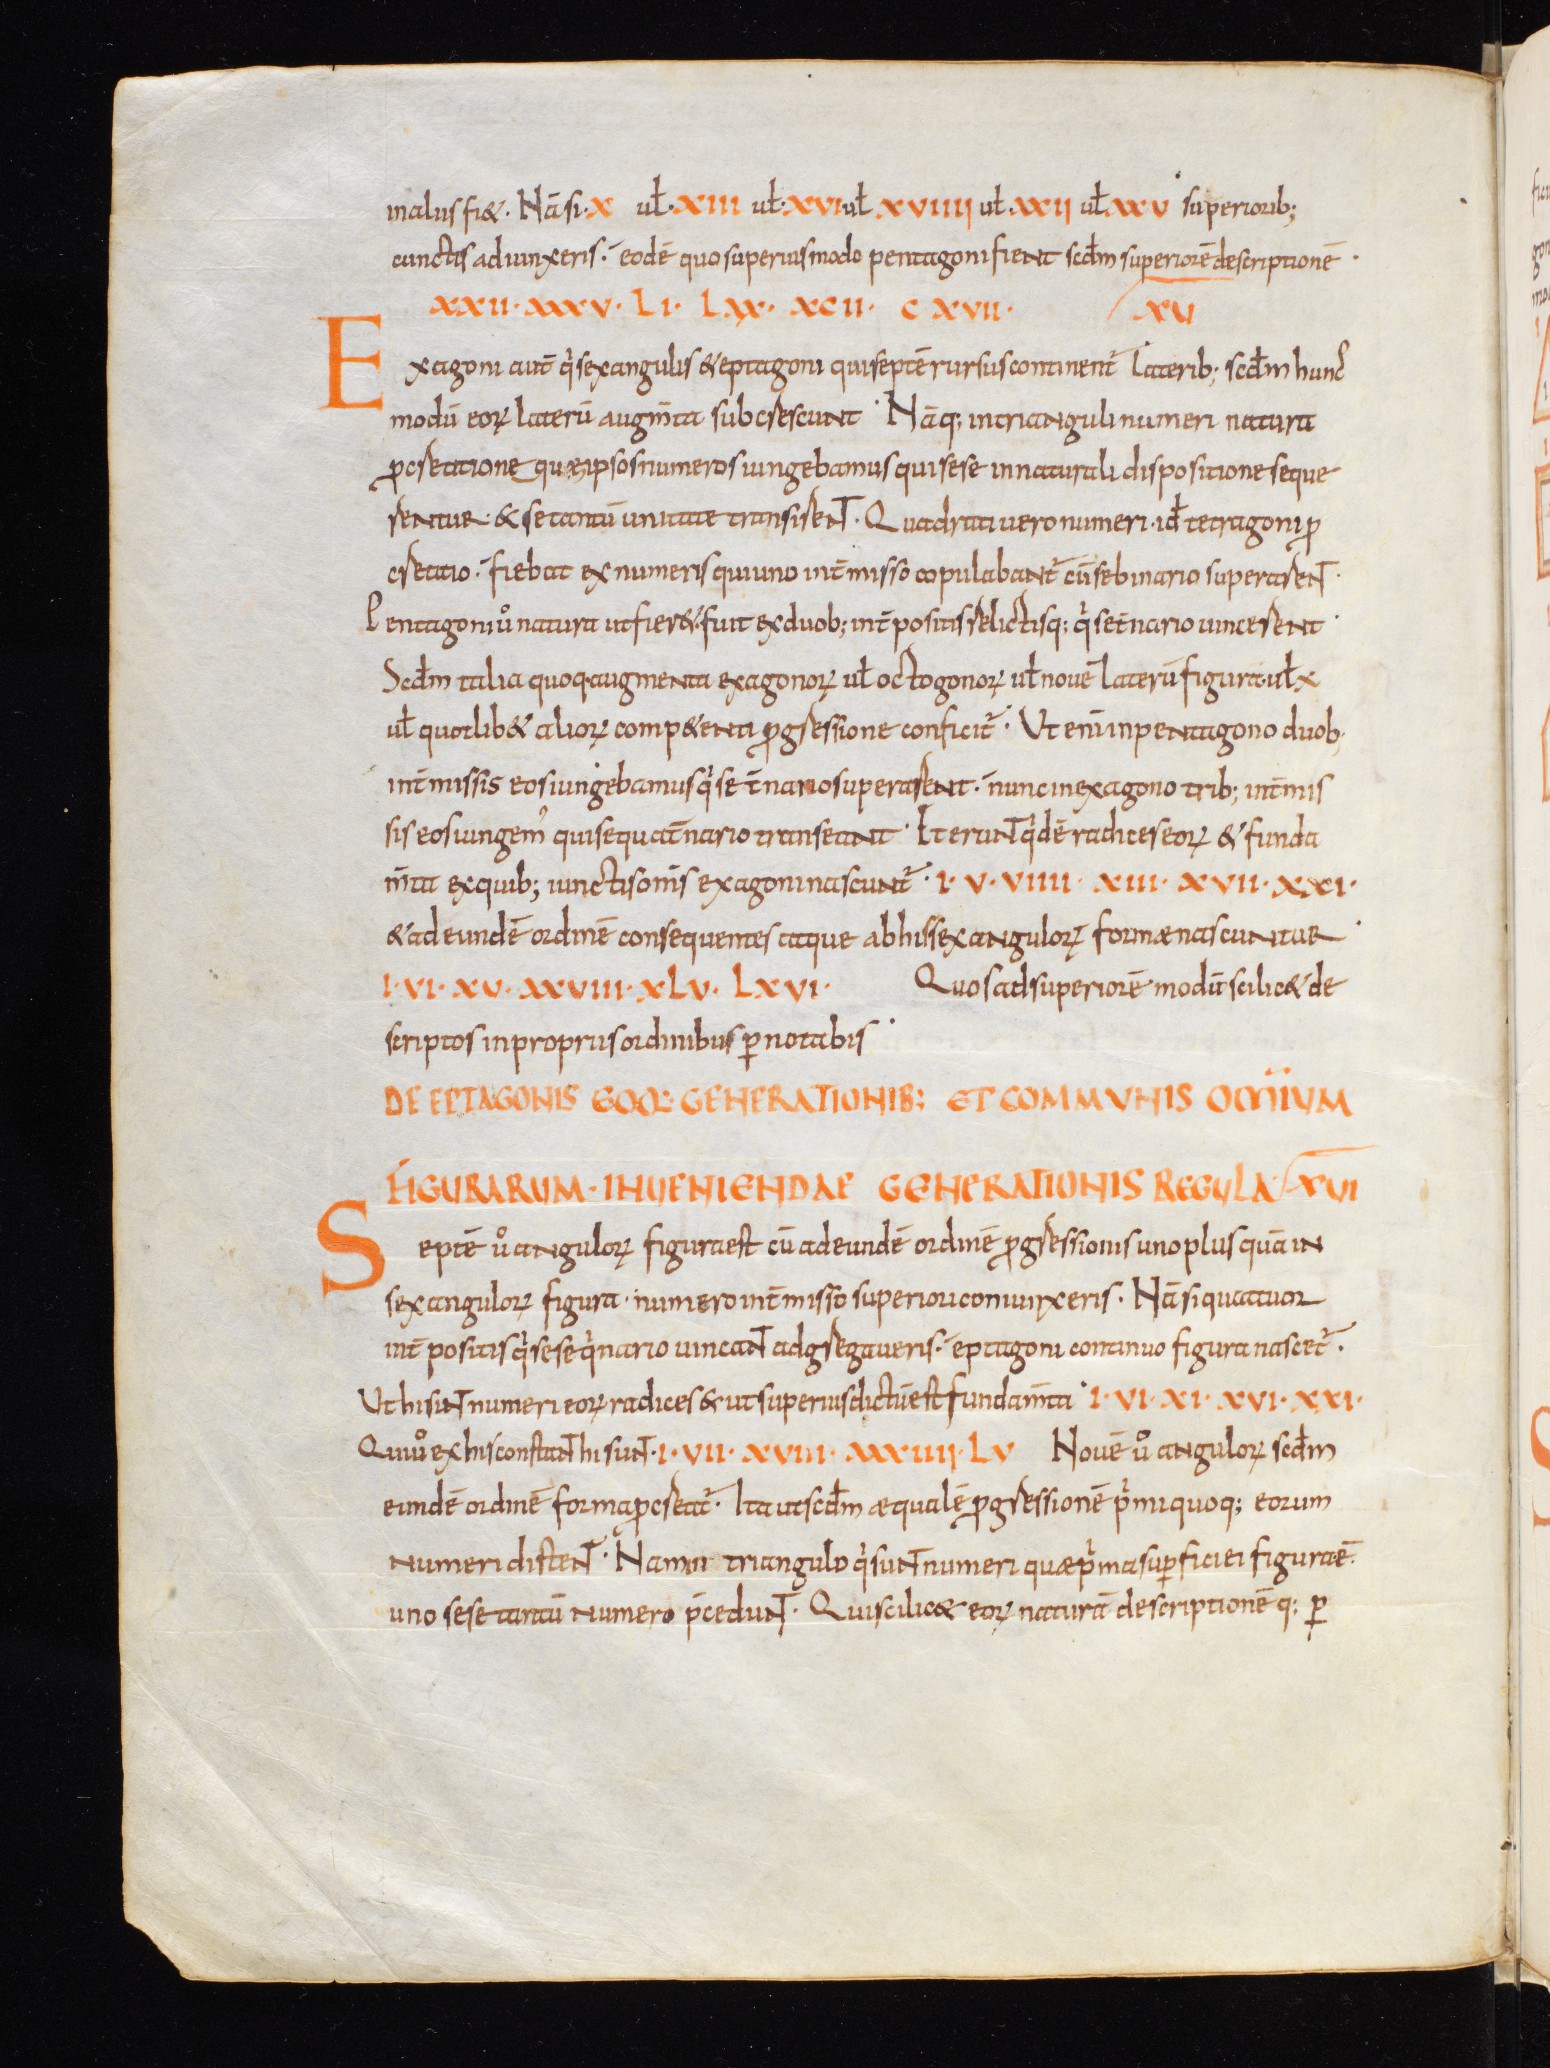 malus fi&. Nā si · X uł · XIII uł · XVI uł XVIIII uł · XXII uł XXV superiorib;
cunctis adiunxeris · eodē quo superius modo pentagoni fient scd̄m superiorē descriptionē ·
XXII · XXXV · LI · LXX · XCII · CXVII · XV
Exagoni aut̄ q̇ sexangulis & eptagoni qui septē rursus continent̄ laterib; scd̄m hunc
modū eoꝝ laterū augm̄ta subcrescunt · Nāq; in trianguli numeri natura
ꝓcreatione quæ ipsos numeros iungebamus qui sese in naturali dispositione seque
rentur · & se tantū unitate transirent · Quadrati uero numeri · id̄ tetragoni ꝓ
creatio · fiebat ex numeris qui uno int̄misso copulabant̄ cū se binario superarent ·
Pentagoni ů natura ut fier& · fuit ex duob; int̄positis relictisq; q̇ se t̄nario uincerent ·
Scd̄m talia quoq. augmenta exagonoꝝ uł octogonoꝝ uł nouē laterū figura uł x
uł quotlib& alioꝝ comp&enti ꝓgressione conficit̄ · Ut enī in pentagono duob;
int̄missis eos iungebamus q̇ se t̄nario superarent · nunc in exagono trib; int̄mis
sis eos iungem' qui se quat̄nario transeant · Et erunt q̇dē radices eoꝝ & funda
m̄ta ex quib; iunctis om̄s exagoni nascunt̄ · I · V · VIIII · XIII · XVII · XXI ·
& ad eundē ordinē consequentes itaque ab his sexanguloꝝ formæ nascuntur ·
I · VI · XV · XXVIII · XLV · LXVI · Quos ad superiorē modū scilic& de
scriptos in propriis ordinibus ꝑnotabis ·
DE EPTAGONIS EOꝜ GENERATIONIB; ET COMMVNIS OM̄IVM
FIGURARUM · INUENIENDAE GENERATIONIS REGULA · XVI
Septē ů anguloꝝ figura est cū ad eundē ordinē ꝓgressionis uno plus quā in
sexanguloꝝ figura · numero int̄misso superiori coniunxeris · Nā si quatuor
int̄positis q̇ sese q̇nario uincant adgregaueris · eptagoni continuo figura nascet̄ ·
Ut hi sint numeri eoꝝ radices & ut superius dictū est fundam̄ta · I · VI · XI · XVI · XXI ·
Qui ů ex his constant hi sunt · I · VII · XVIII · XXXIIII · LV Nouē ů anguloꝝ scd̄m
eundē ordinē forma ꝓcreat̄ · Ita ut scd̄m æqualē ꝓgressionē p̓mi quoq; eorum
numeri distent · Nam in triangulo q̇ sunt numeri quæ p̓ma suꝑficiei figura ē ·
uno sese tantū numero p̄cedunt · Qui scilic& eoꝝ naturā descriptionēq; ꝑ